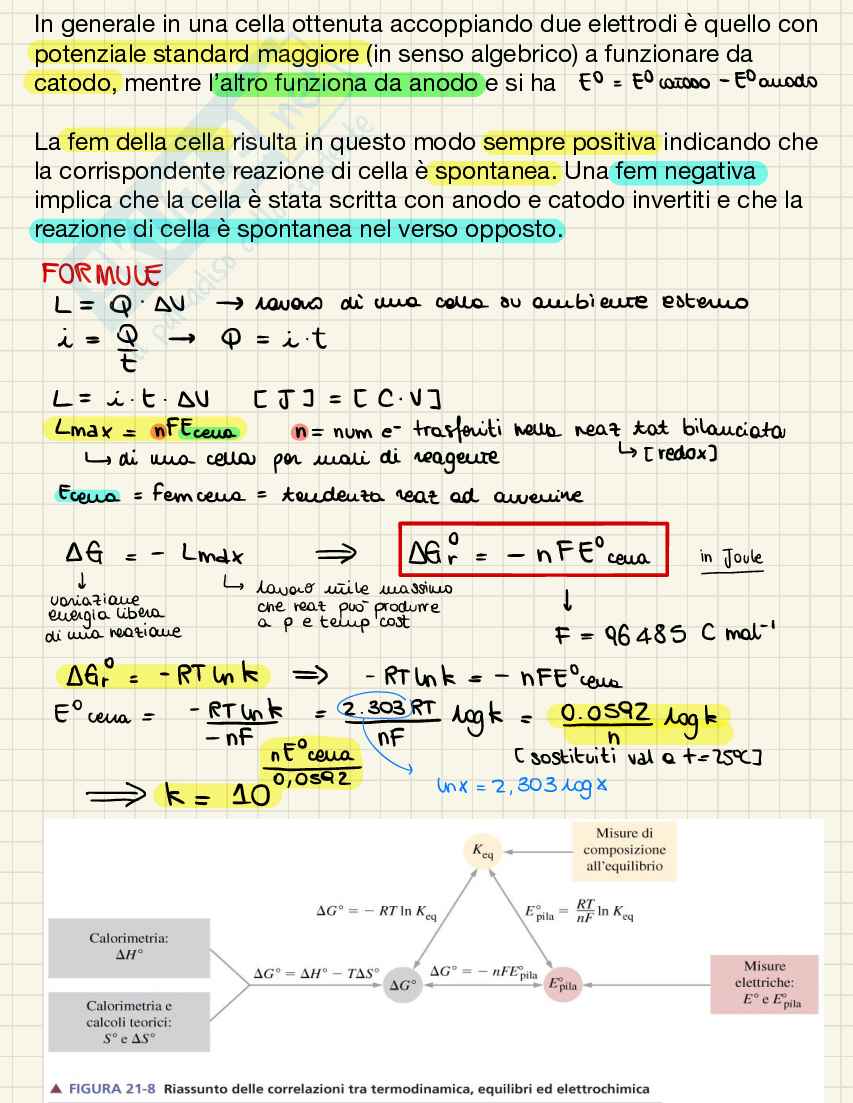 In generale in una cella ottenuta accoppiando due elettrodi è quello con
potenziale standard maggiore (in senso algebrico) a funzionare da
catodo, mentre l'altro funziona da anodo e si ha E⁰ = E⁰ catodo - E⁰ anodo
La fem della cella risulta in questo modo sempre positiva indicando che
la corrispondente reazione di cella è spontanea. Una fem negativa
implica che la cella è stata scritta con anodo e catodo invertiti e che la
reazione di cella è spontanea nel verso opposto.
FORMULE
L = Q · ΔV → lavoro di una cella su ambiente esterno
i = Q/t → Q = i · t
L = i · t · ΔV [J] = [C·V]
Lmax = nFEcella n = num e⁻ trasferiti nella reaz tot bilanciata
↳ di una cella per moli di reagente ↳ [redox]
Ecella = femcella = tendenza reaz ad avvenire
ΔG = - Lmax ⇒ ΔG⁰r = - nFE⁰cella in Joule
↓ variazione energia libera di una reazione
↳ lavoro utile massimo che reaz può produrre a p e temp cost
↓ F = 96485 C mol⁻¹
ΔGr⁰ = -RT ln k ⇒ -RT ln k = - nFE⁰cella
E⁰cella = -RT ln k / -nF = 2.303 RT / nF log k = 0.0592 / n log k
[sostituiti val a t=25°C]
⇒ k = 10^(nE⁰cella / 0,0592) ln x = 2,303 log x
Misure di
composizione
all'equilibrio
Keq
ΔG° = − RT ln Keq
E°pila = RT/nF ln Keq
Calorimetria:
ΔH°
ΔG° = ΔH° − TΔS°
ΔG°
ΔG° = − nFE°pila
E°pila
Misure
elettriche:
E° e E°pila
Calorimetria e
calcoli teorici:
S° e ΔS°
▲ FIGURA 21-8 Riassunto delle correlazioni tra termodinamica, equilibri ed elettrochimica